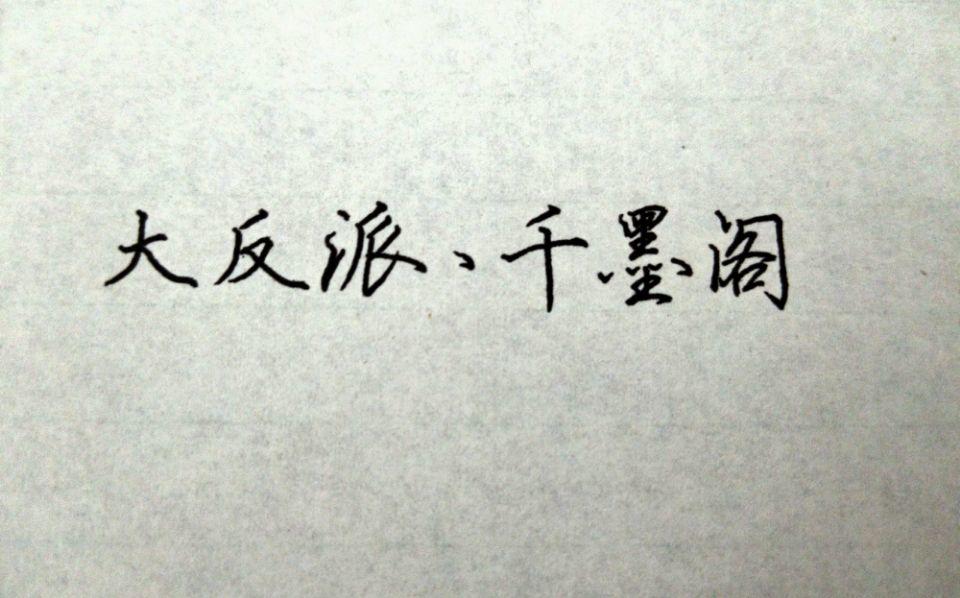 大反派、千墨阁